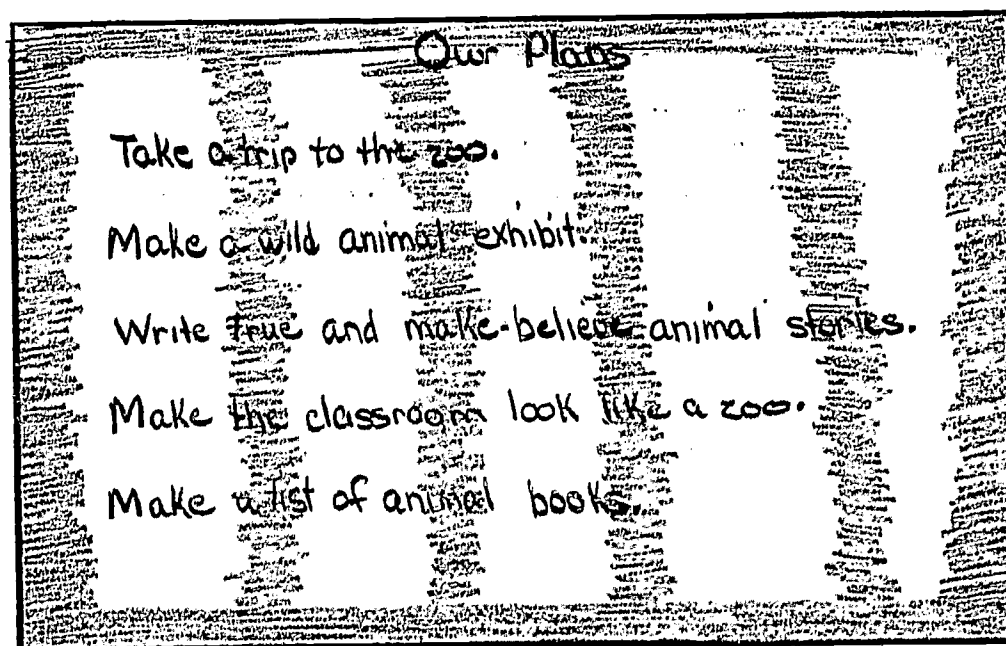 Our Plans
Take a trip to the zoo.
Make a wild animal exhibit.
Write true and make-believe animal stories.
Make the classroom look like a zoo.
Make a list of animal books.